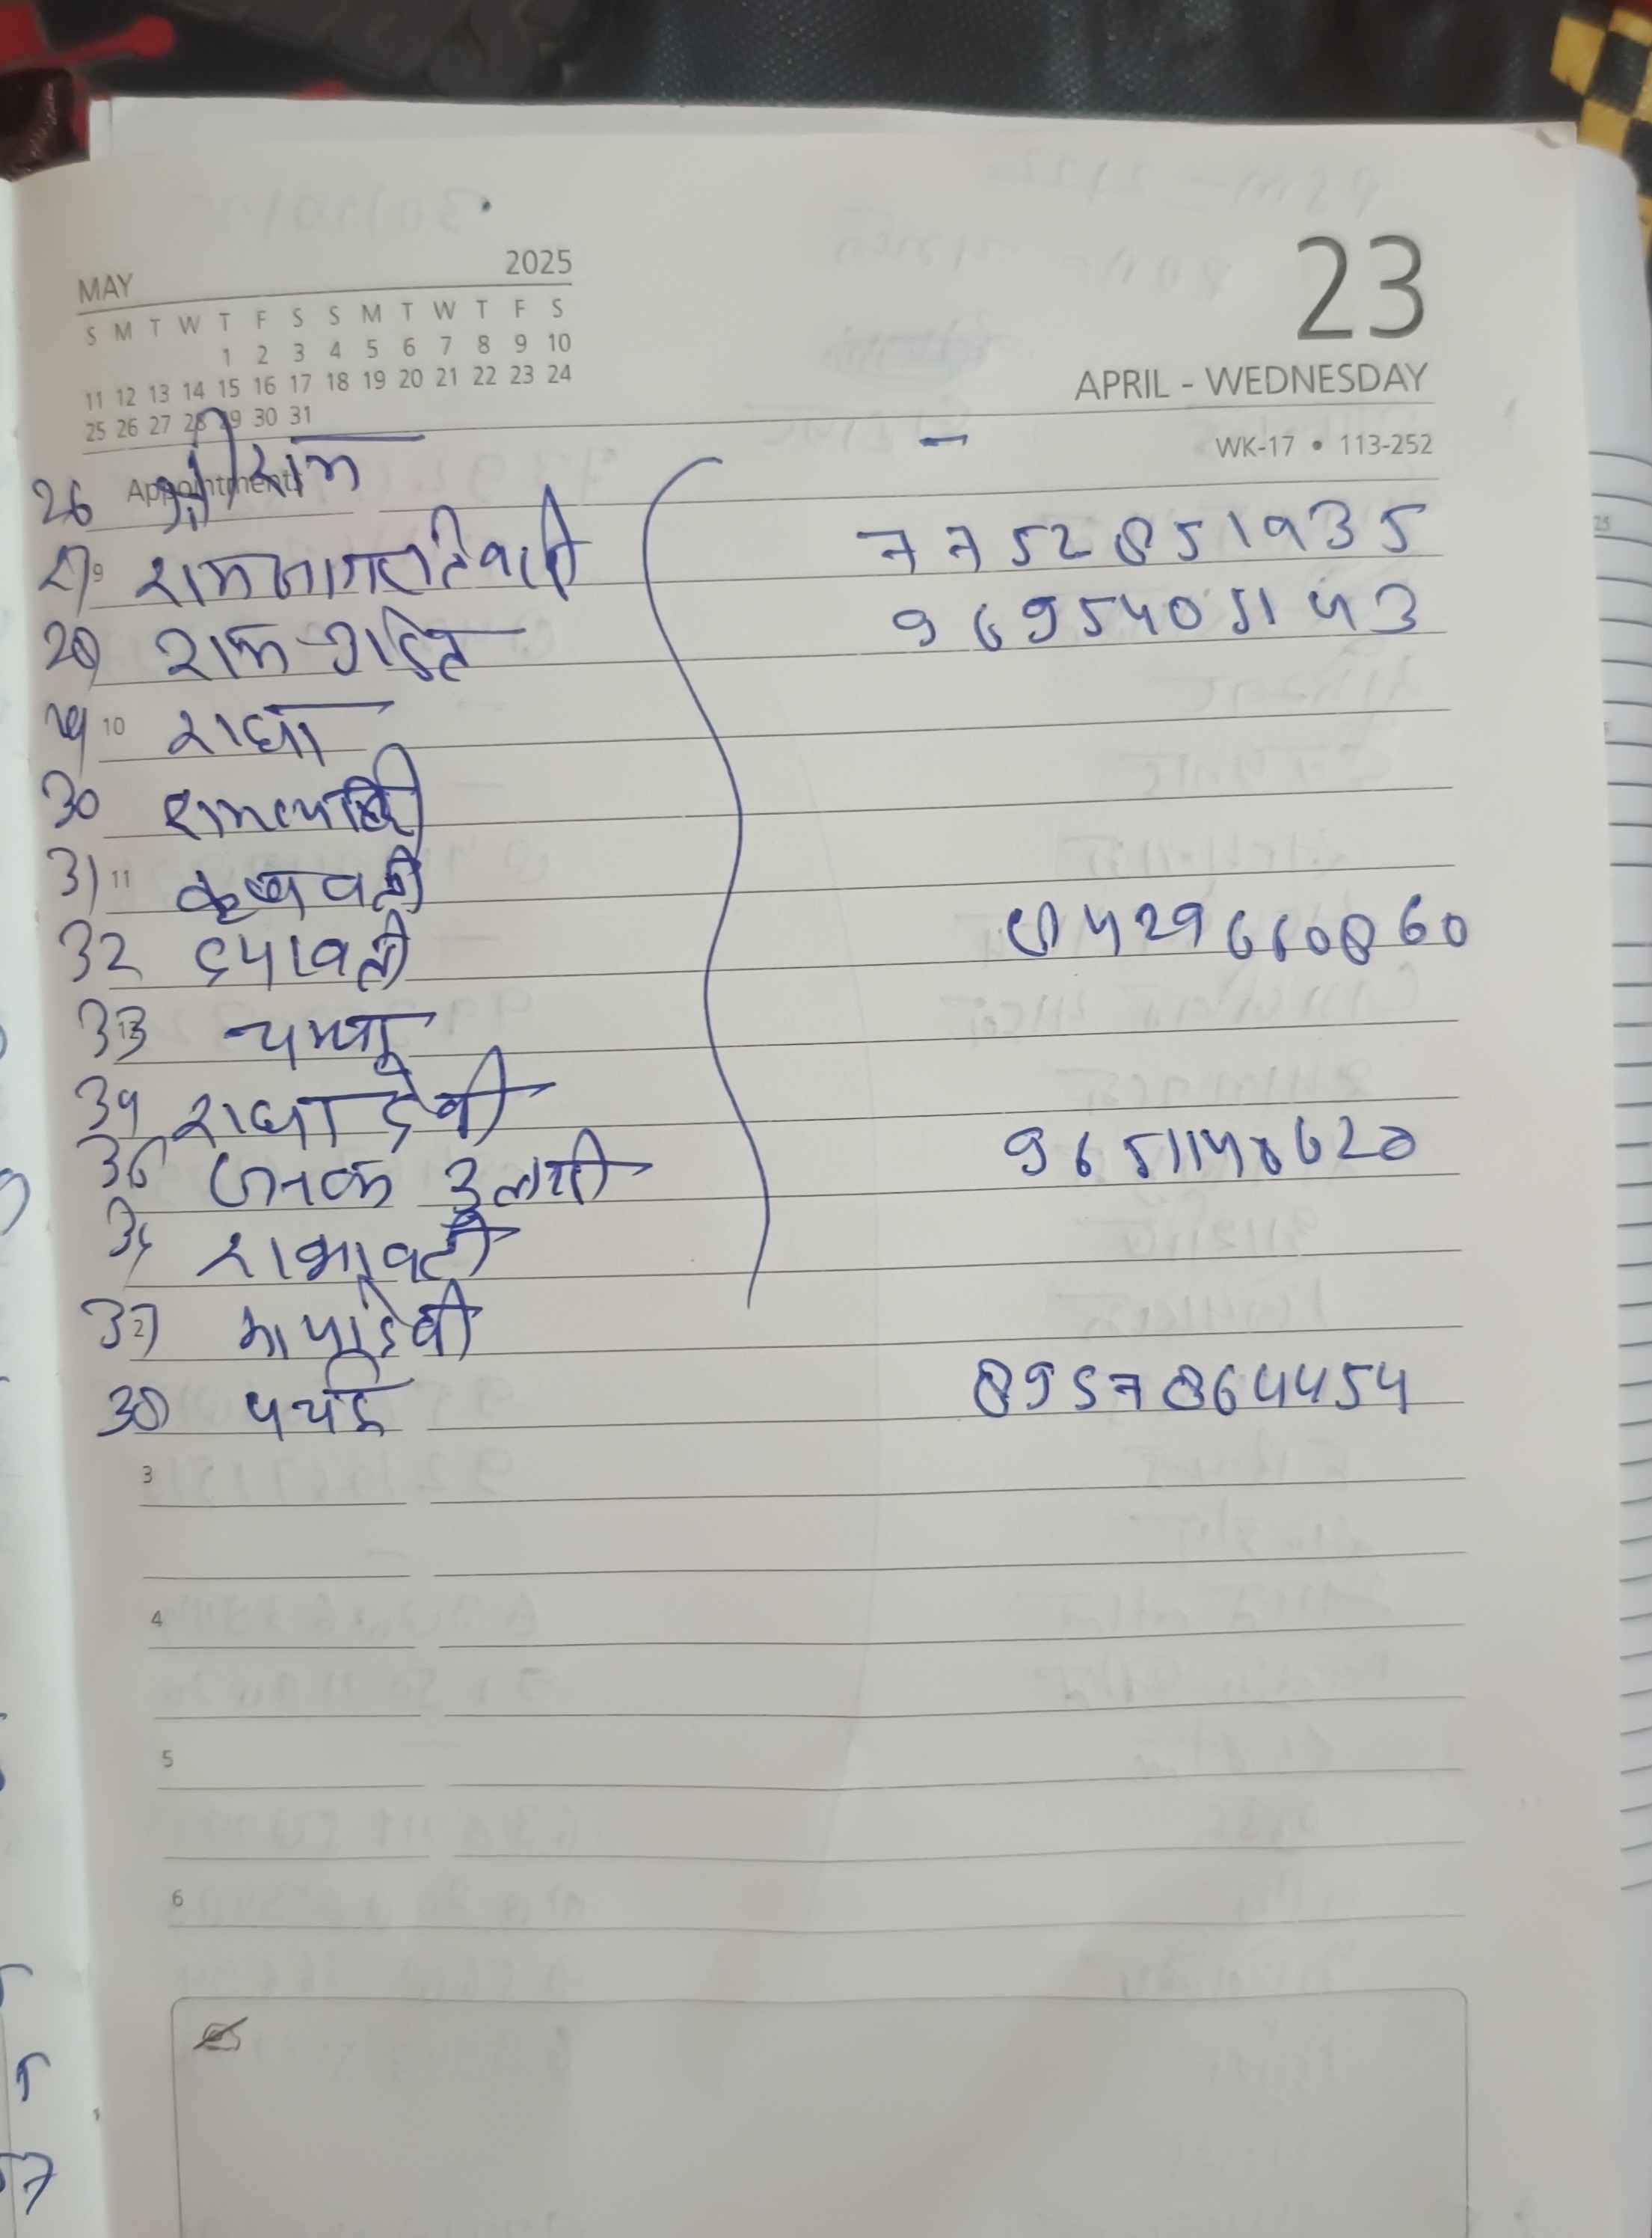 MAY 2025
S M T W T F S S M T W T F S
1 2 3 4 5 6 7 8 9 10
11 12 13 14 15 16 17 18 19 20 21 22 23 24
25 26 27 28 29 30 31
23
APRIL - WEDNESDAY
WK-17 • 113-252
Appointments
26 श्रीराम -
27 9 रामजागरतिवारी 7752851935
28 राम 9695405143
29 10 राधा
30
31 11 कृष्णवती
32 दयावती 9660860
33 चम्पा
34 राधा देवी
36 जनक दुलारी 9651148620
35
37 2 माया देवी
38 8957864454
3
4
5
6